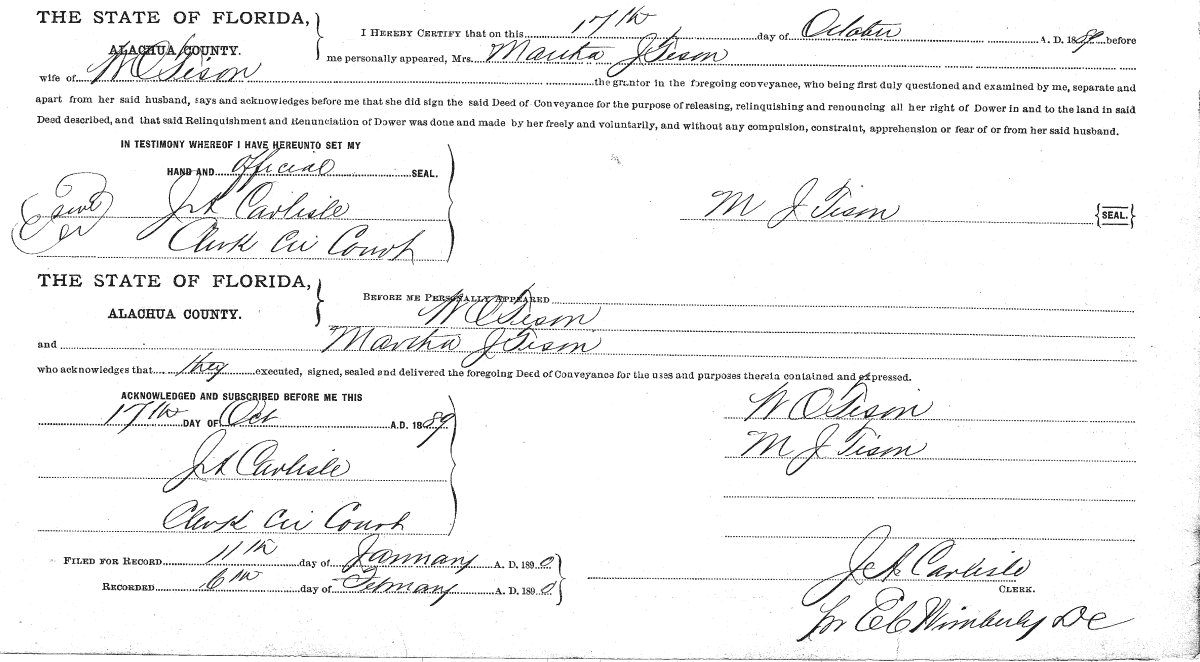 THE STATE OF FLORIDA,
ALACHUA COUNTY.
I HEREBY CERTIFY that on this 17th day of October A. D. 1889 before
me personally appeared, Mrs. Martha J Tison
wife of W O Tison the grantor in the foregoing conveyance, who being first duly questioned and examined by me, separate and
apart from her said husband, says and acknowledges before me that she did sign the said Deed of Conveyance for the purpose of releasing, relinquishing and renouncing all her right of Dower in and to the land in said
Deed described, and that said Relinquishment and Renunciation of Dower was done and made by her freely and voluntarily, and without any compulsion, constraint, apprehension or fear of or from her said husband.
IN TESTIMONY WHEREOF I HAVE HEREUNTO SET MY
HAND AND official SEAL.
J A Carlisle
Clerk Cir Court
M J Tison {SEAL.}
THE STATE OF FLORIDA,
ALACHUA COUNTY.
BEFORE ME PERSONALLY APPEARED
W O Tison
and Martha J Tison
who acknowledges that they executed, signed, sealed and delivered the foregoing Deed of Conveyance for the uses and purposes therein contained and expressed.
ACKNOWLEDGED AND SUBSCRIBED BEFORE ME THIS
17th DAY OF Oct A.D. 1889
J A Carlisle
Clerk Cir Court
W O Tison
M J Tison
FILED FOR RECORD 11th day of January A. D. 1890
RECORDED 6th day of February A. D. 1890
J A Carlisle
CLERK.
Wimberly DC